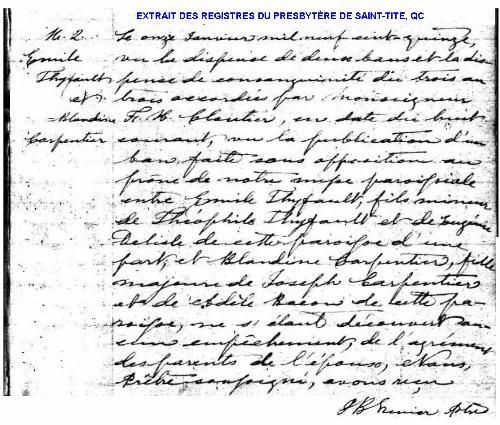 EXTRAIT DES REGISTRES DU PRESBYTÈRE DE SAINT-TITE, QC
M. 2
Emile
Thyfault
et
Blandine
Carpentier
Le onze Janvier mil neuf cent-quinze,
vu la dispense de deux bans et la dis
pense de consanguinité du trois au
trois accordées par Monseigneur
F. X. Cloutier, en date du huit
courant, vu la publication d'un
ban faite sans opposition au
prône de notre messe paroissiale
entre Emile Thyfault, fils mineur
de Théophile Thyfault et de Eugénie
Delisle de cette paroisse d'une
part, et Blandine Carpentier, fille
majeure de Joseph Carpentier
et de Adèle Bacon de cette pa-
roisse, ne s'étant découvert au-
cun empêchement, de l'agrément
des parents de l'époux, Nous,
Prêtre soussigné, avons reçu
J B Grenier Ptre